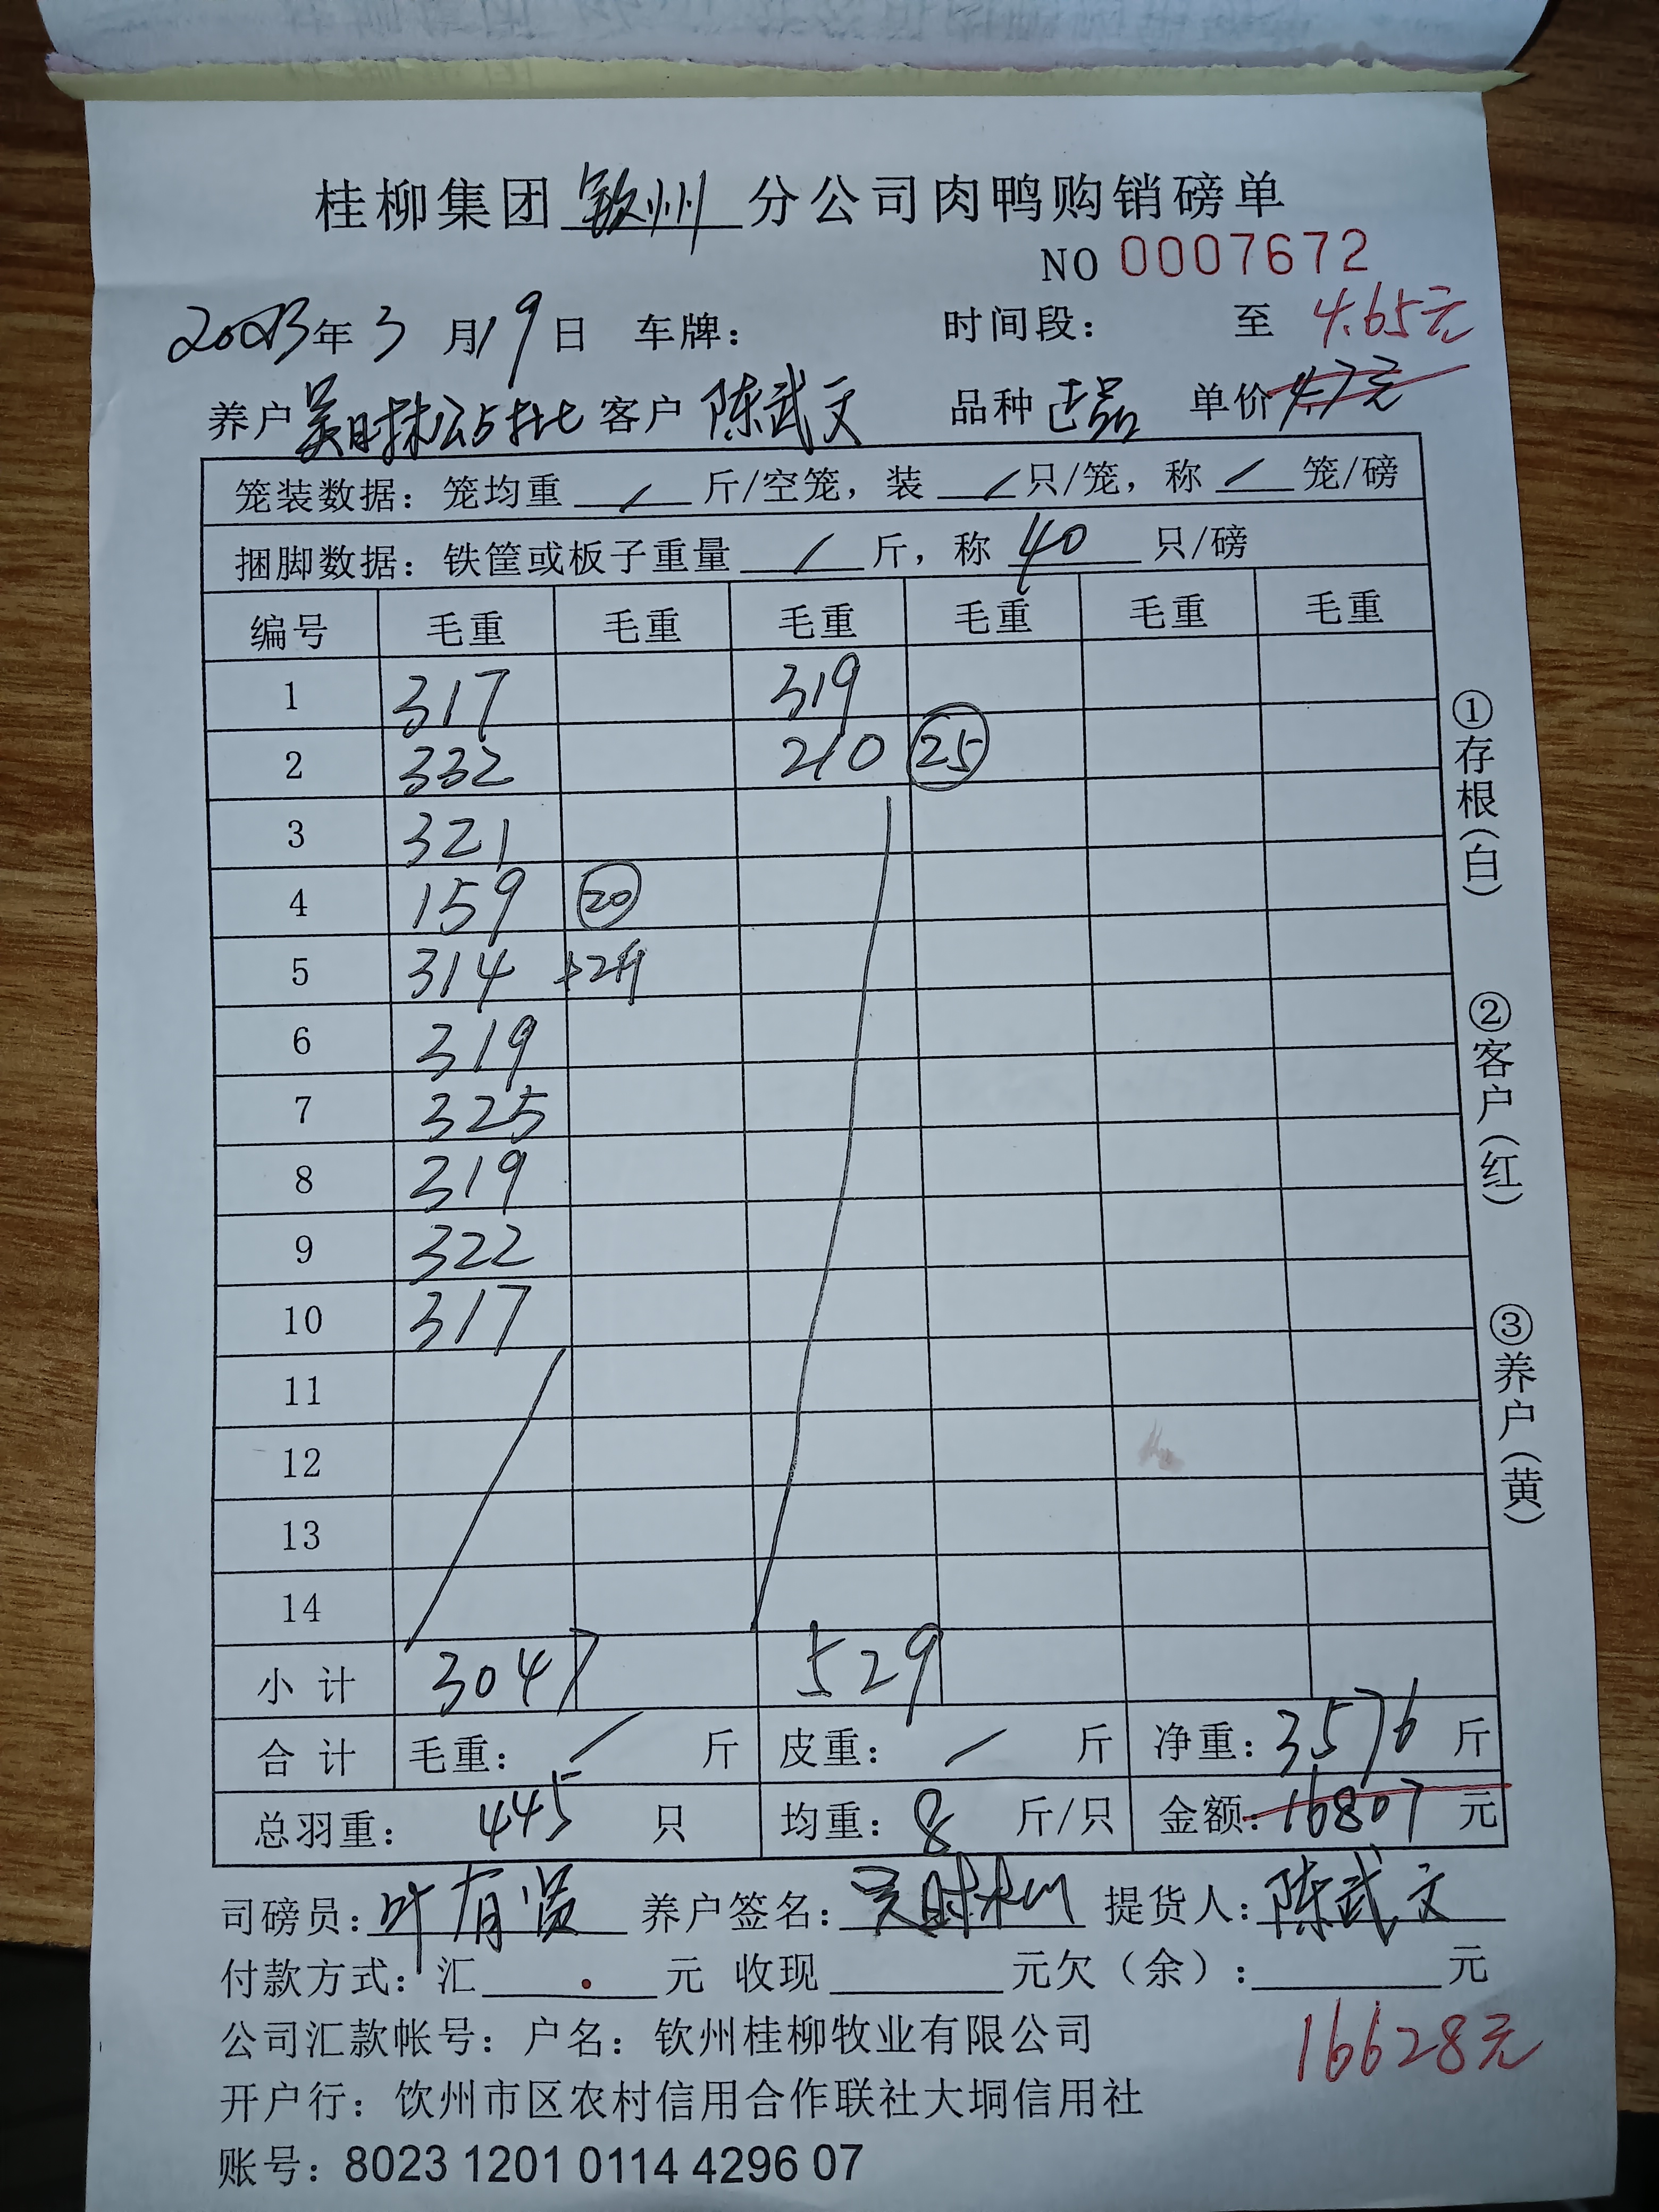 桂柳集团 钦州 分公司肉鸭购销磅单
NO 0007672
2023年 3 月 19 日 车牌： 时间段： 至 4.65元
养户 吴时 客户 陈武文 品种 正品 单价 4.7元
笼装数据：笼均重 / 斤/空笼，装 / 只/笼，称 / 笼/磅
捆脚数据：铁筐或板子重量 / 斤，称 40 只/磅
编号 毛重 毛重 毛重 毛重 毛重 毛重
1 317 319
2 332 210 25
3 321
4 159 20
5 314
6 319
7 325
8 319
9 322
10 317
11
12
13
14
小计 3047 529
合计 毛重： / 斤 皮重： / 斤 净重：3576 斤
总羽重： 445 只 均重： 8 斤/只 金额：16807 元
司磅员：叶有贤 养户签名：吴时 提货人：陈武文
付款方式：汇 元 收现 元欠（余）： 元
16628元
公司汇款帐号：户名：钦州桂柳牧业有限公司
开户行：钦州市区农村信用合作联社大垌信用社
账号：8023 1201 0114 4296 07
①存根（白）
②客户（红）
③养户（黄）